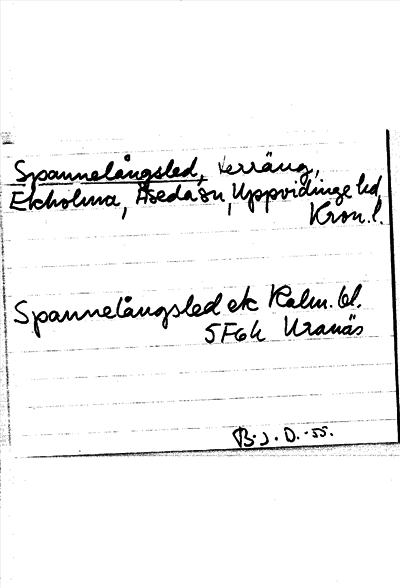 Spannelångsled, terräng,
Ekholma, Åseda sn, Uppvidinge hd
Kron.l.
Spannelångsled ek Kalm. bl.
5F6h Uranäs
B.J.D.-55.